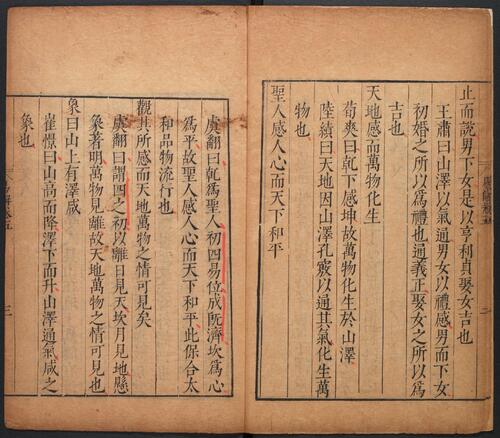 止而說男下女是以亨利貞娶女吉也
王肅曰山澤以氣通男女以禮感男而下女
初婚之所以爲禮也通義正娶女之所以爲
吉也
天地感而萬物化生
荀爽曰乾下感坤故萬物化生於山澤
陸績曰天地因山澤孔竅以通其氣化生萬
物也
聖人感人心而天下和平
虞翻曰乾爲聖人初四易位成旣濟坎爲心
爲平故聖人感人心而天下和平此保合太
和品物流行也
觀其所感而天地萬物之情可見矣
虞翻曰謂四之初以離日見天坎月見地懸
象著明萬物見離故天地萬物之情可見也
象曰山上有澤咸
崔憬曰山高而降澤下而升山澤通氣咸之
象也
二
三